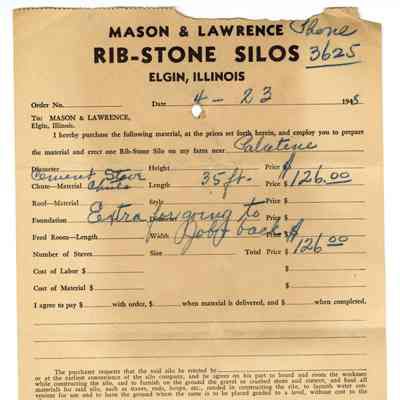 MASON & LAWRENCE Phone
RIB-STONE SILOS 3625
ELGIN, ILLINOIS
Order No. Date 4-23 1945
To: MASON & LAWRENCE,
Elgin, Illinois.
I hereby purchase the following material, at the prices set forth herein, and employ you to prepare
the material and erect one Rib-Stone Silo on my farm near Palatine
Diameter Height Price $
Cement Stave
Chute—Material Chute Length 35 ft. Price $ 126.00
Roof—Material Style Price $
Foundation Extra for going to
Feed Room—Length Width Job & back Price $
Number of Staves Size Total Price $ 126 00
Cost of Labor $ $
Cost of Material $ $
I agree to pay $ with order, $ when material is delivered, and $ when completed.
The purchaser requests that the said silo be erected by
or at the earliest convenience of the silo company, and he agrees on his part to board and room the workmen
while constructing the silo, and to furnish on the ground the gravel or crushed stone and cement, and haul all
materials for said silo, such as staves, rods, hoops, etc., needed in constructing the silo, to furnish water con-
venient for use and to have the ground where the same is to be placed graded to a level, without cost to the